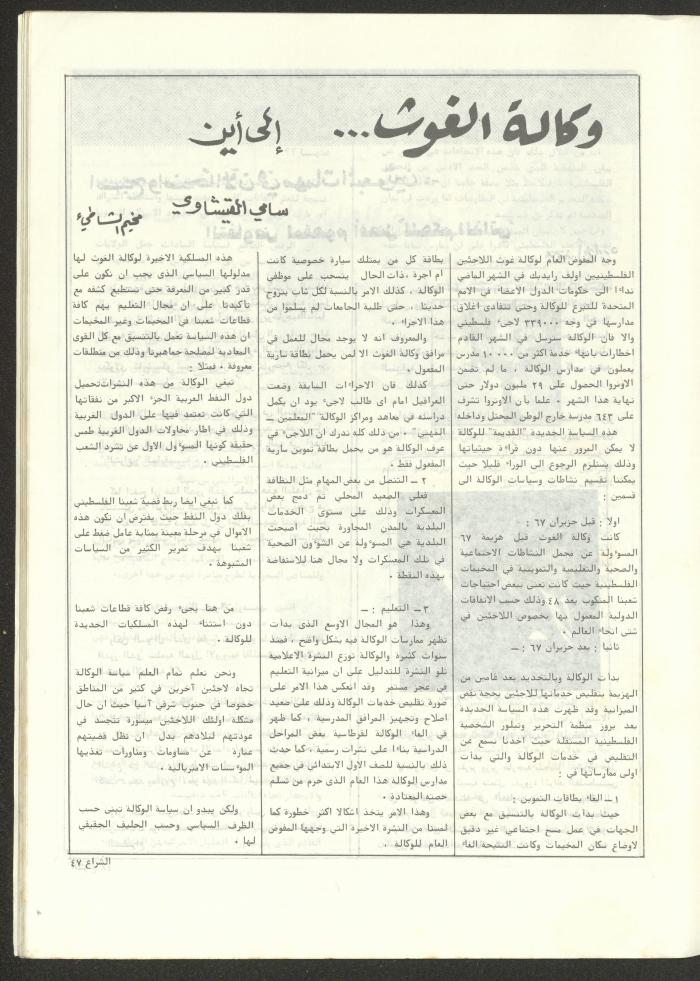 وكالة الغوث... إلى أين
سامي القيشاوي
مخيم الشاطيء
وجه المفوض العام لوكالة غوث اللاجئين
الفلسطينيين اولف رايدبك في الشهر الماضي
نداءا الى حكومات الدول الاعضاء في الامم
المتحدة للتبرع للوكالة وحتى تتفادى اغلاق
مدارسها في وجه ٣٣٩٠٠٠ لاجيء فلسطيني
والا فان الوكالة سترسل في الشهر القادم
اخطارات بانهاء خدمة اكثر من ١٠٠٠٠ مدرس
يعملون في مدارس الوكالة ، ما لم تضمن
الاونروا الحصول على ٢٩ مليون دولار حتى
نهاية هذا الشهر . علما بأن الاونروا تشرف
على ٦٤٣ مدرسة خارج الوطن المحتل وداخله
هذه السياسة الجديدة "القديمة" للوكالة
لا يمكن المرور عنها دون قراءة حيثياتها
وذلك يستلزم الرجوع الى الوراء قليلا حيث
يمكننا تقسيم نشاطات وسياسات الوكالة الى
قسمين :
اولا : قبل حزيران ٦٧ :
كانت وكالة الغوث قبل هزيمة ٦٧
المسؤولة عن مجمل النشاطات الاجتماعية
والصحية والتعليمية والتموينية في المخيمات
الفلسطينية حيث كانت تعنى ببعض احتياجات
شعبنا المنكوب بعد ٤٨ وذلك حسب الاتفاقات
الدولية المعمول بها بخصوص اللاجئين في
شتى انحاء العالم .
ثانيا : بعد حزيران ٦٧ : ــ
بدأت الوكالة وبالتحديد بعد عامين من
الهزيمة بتقليص خدماتها للاجئين بحجة نقص
الميزانية وقد ظهرت هذه السياسة الجديدة
بعد بروز منظمة التحرير وتبلور الشخصية
الفلسطينية المستقلة حيث اخذنا نسمع عن
التقليص في خدمات الوكالة والتي بدأت
اولى ممارساتها في :
١ ــ الغاء بطاقات التموين :
حيث بدأت الوكالة بالتنسيق مع بعض
الجهات في عمل مسح اجتماعي غير دقيق
لاوضاع سكان المخيمات وكانت النتيجة الغاء
بطاقة كل من يمتلك سيارة خصوصية كانت
ام اجرة ، ذات الحال ينسحب على موظفي
الوكالة ، كذلك الامر بالنسبة لكل شاب يتزوج
حديثا . حتى طلبة الجامعات لم يسلموا من
هذا الاجراء .
والمعروف انه لا يوجد مجال للعمل في
مرافق وكالة الغوث الا لمن يحمل بطاقة سارية
المفعول .
كذلك فان الاجراءات السابقة وضعت
العراقيل امام اى طالب لاجيء يود ان يكمل
دراسته في معاهد ومراكز الوكالة "المعلمين ــ
المهني" ، من ذلك كله ندرك ان اللاجيء في
عرف الوكالة هو من يحمل بطاقة تموين سارية
المفعول فقط .
٢ ــ التنصل من بعض المهام مثل النظافة
فعلى الصعيد المحلي تم دمج بعض
المعسكرات وذلك على مستوى الخدمات
البلدية بالمدن المجاورة بحيث اصبحت
البلدية هي المسؤولة عن الشؤون الصحية
في تلك المعسكرات ولا مجال هنا للاستفاضة
بهذه النقطة .
٣ ــ التعليم : ــ
وهذا هو المجال الاوسع الذى بدأت
تظهر ممارسات الوكالة فيه بشكل واضح ، فمنذ
سنوات كثيرة والوكالة توزع النشرة الاعلامية
تلو النشرة للتدليل على ان ميزانية التعليم
في عجز مستمر وقد انعكس هذا الامر على
صورة تقليص خدمات الوكالة وذلك على صعيد
اصلاح وتجهيز المرافق المدرسية ، كما ظهر
في الغاء الوكالة لقرطاسية بعض المراحل
الدراسية بناءا على نشرات رسمية ، كما حدث
ذلك بالنسبة للصف الاول الابتدائي في جميع
مدارس الوكالة هذا العام الذى حرم من تسلم
حصته المعتادة .
وهذا الامر يتخذ اشكالا اكثر خطورة كما
لمسنا من النشرة الاخيرة التي وجهها المفوض
العام للوكالة .
هذه المسلكية الاخيرة لوكالة الغوث لها
مدلولها السياسي الذى يجب ان نكون على
قدر كبير من المعرفة حتى نستطيع كشفه مع
تأكيدنا على ان مجال التعليم يهم كافة
قطاعات شعبنا في المخيمات وغير المخيمات
ان هذه السياسة تعمل بالتنسيق مع كل القوى
المعادية لمصلحة جماهيرنا وذلك من منطلقات
معروفة . فمثلا :
تبغي الوكالة من هذه النشرات تحميل
دول النفط العربية الجزء الاكبر من نفقاتها
التي كانت تعتمد فيها على الدول الغربية
وذلك في اطار محاولات الدول الغربية طمس
حقيقة كونها المسؤول الاول عن تشرد الشعب
الفلسطيني .
كما تبغي ايضا ربط قضية شعبنا الفلسطيني
بفلك دول النفط حيث يفترض ان تكون هذه
الاموال في مرحلة معينة بمثابة عامل ضغط على
شعبنا بهدف تمرير الكثير من السياسات
المشبوهة .
من هنا يجيء رفض كافة قطاعات شعبنا
دون استثناء لهذه المسلكيات الجديدة
للوكالة .
ونحن نعلم تمام العلم سياسة الوكالة
تجاه لاجئين آخرين في كثير من المناطق
خصوصا في جنوب شرقي آسيا حيث ان حال
مشكلة اولئك اللاجئين ميسورة تتجسد في
عودتهم لبلادهم بدل ان تظل قضيتهم
عبارة عن مساومات ومناورات تغذيها
المؤسسات الامبريالية .
ولكن يبدو ان سياسة الوكالة تبنى حسب
الظرف السياسي وحسب الحليف الحقيقي
لها .
الشراع ٤٧